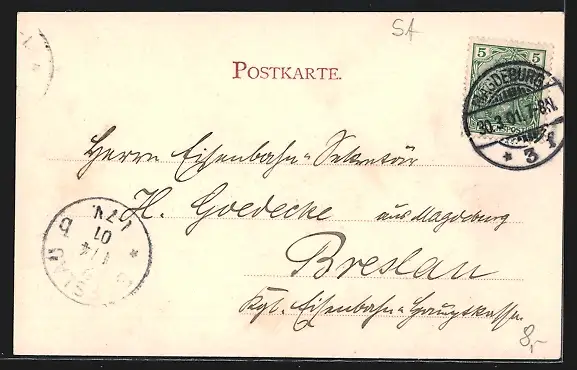 SA
POSTKARTE.
5 5
MAGDEBURG
30.3.01. 7-8N.
* 3 f
Herrn Eisenbahn-Sekretär
H. Goedecke aus Magdeburg
Breslau
Kgl. Eisenbahn-Hauptkasse.
BRESLAU
1/4
01
8,-